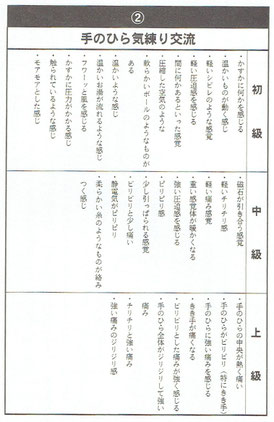 ②
手のひら気練り交流
初級
・かすかに何かを感じる
・温かいものが動く感じ
・軽いシビレのような感覚
・軽い圧迫感を感じる
・間に何かあるといった感覚
・圧縮した空気のような
・軟らかいボールのようなものが
ある
・温かいような感じ
・温かいお湯が流れるような感じ
・フワーッと風を感じる
・かすかに圧力がかかる感じ
・触られているような感じ
・モアモアとした感じ
中級
・磁石が引き合う感覚
・軽いチリチリ感
・軽い痛み感覚
・重い感覚体が暖かくなる
・強い圧迫感を感じる
・ピリピリ感
・少し引っぱられる感覚
・ピリピリと少し痛い
・静電気がピリピリ
・柔らかい糸のようなものが絡み
つく感じ
上級
・手のひらの中央が熱く痛い
・手のひらがピリピリ（特にきき手）
・手のひらに強い痛みを感じる
・きき手が痛くなる
・ピリピリとした痛みが強く感じる
・手のひら全体がジリジリして強い
痛み
・チリチリと強い痛み
・強い痛みのジリジリ感